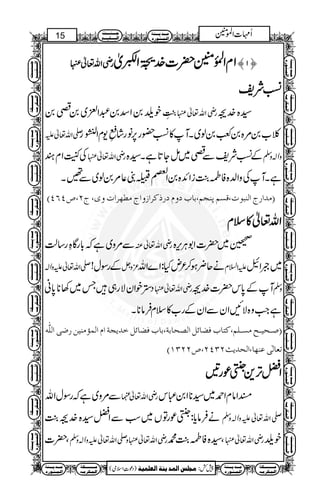 15
اُمہات المؤمنین
﴿۱﴾ ام المؤمنین حضرت خدیجۃ الکبریٰ رضی اللہ تعالیٰ عنہا
نسب شریف
سیدہ خدیجہ رضی اللہ تعالیٰ عنہا بنتِ خویلد بن اسد بن عبدالعزی بن قصی بن
کلاب بن مرہ بن کعب بن لوی۔ آپ کا نسب حضور پر نور شافع یوم النشور صلی اللہ تعالیٰ علیہ
والہ وسلم کے نسب شریف سے قصی میں مل جاتا ہے۔ سیدہ رضی اللہ تعالیٰ عنہا کی کنیت ام ہند
ہے۔ آپ کی والدہ فاطمہ بنت زائدہ بن العصم قبیلہ بنی عامر بن لوی سے تھیں۔
(مدارج النبوت،قسم پنجم،باب دوم درذکرازواج مطہرات وی، ج۲،ص۴۶۴)
اللہ تعالیٰ کا سلام
صحیحین میں حضرت ابوہریرہ رضی اللہ تعالیٰ عنہ سے مروی ہے کہ بارگاہِ رسالت
میں جبرائیل علیہ السلام نے حاضر ہو کر عرض کیا: اے اللہ عزوجل کے رسول! صلی اللہ تعالیٰ علیہ والہ
وسلم آپ کے پاس حضرت خدیجہ رضی اللہ تعالیٰ عنہا دستر خوان لارہی ہیں جس میں کھانا پانی
ہے جب وہ لائیں ان سے ان کے رب کا سلام فرمانا۔
(صحیح مسلم،کتاب فضائل الصحابة،باب فضائل خدیجة ام المؤمنین رضی اللّٰه
تعالٰی عنها،الحدیث۲۴۳۲،ص۱۳۲۲)
افضل ترین جنتی عورتیں
مسند امام احمد میں سیدنا ابن عباس رضی اللہ تعالیٰ عنہما سے مروی ہے کہ رسول اللہ
صلی اللہ تعالیٰ علیہ والہ وسلم نے فرمایا: جنتی عورتوں میں سب سے افضل سیدہ خدیجہ بنت
خویلد رضی اللہ تعالیٰ عنہا، سیدہ فاطمہ بنت محمد رضی اللہ تعالیٰ عنہا وصلی اللہ تعالیٰ علیہ والہ وسلم، حضرت
پیش کش: مجلس المدینة العلمیة (دعوتِ اسلامی)